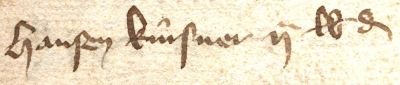 Hansen kürsner ij lb d